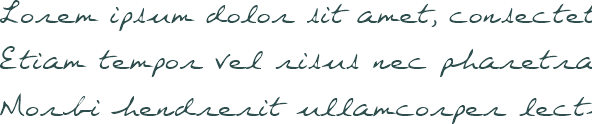 Lorem ipsum dolor sit amet, consectet
Etiam tempor vel risus nec pharetra
Morbi hendrerit ullamcorper lect